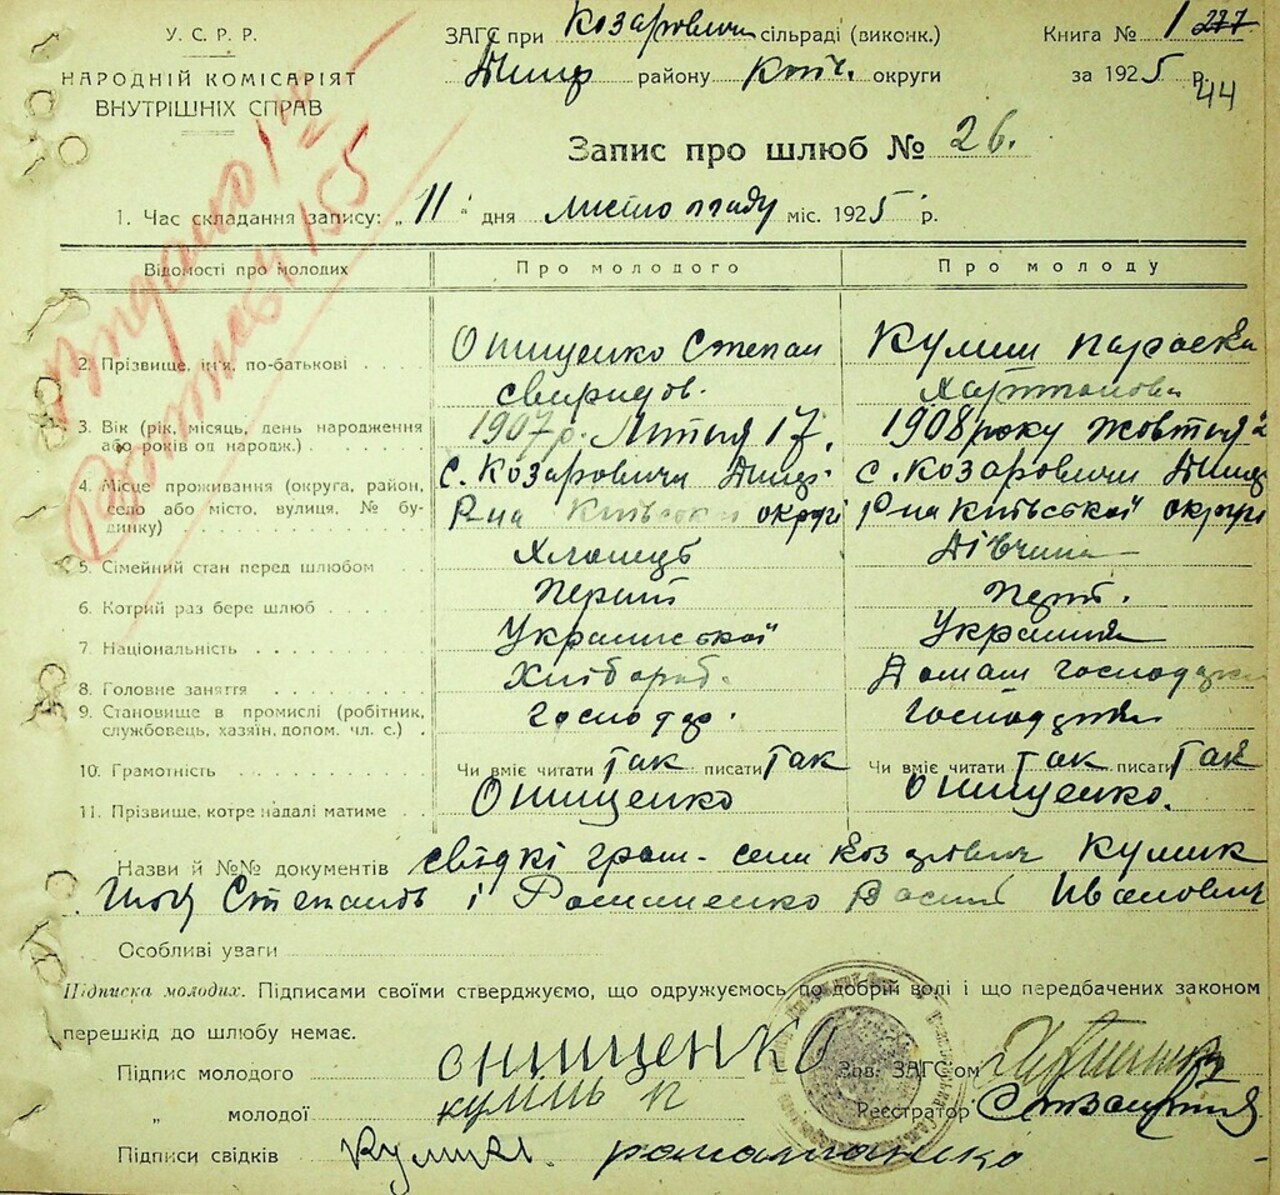 У. С. Р. Р.
НАРОДНІЙ КОМІСАРІЯТ
ВНУТРІШНІХ СПРАВ
ЗАГС при Козаровичи сільраді (виконк.)
Димр району Київ. округи
Книга № 1 277
за 1925 р.
44
Видано
155
Запис про шлюб № 26.
1. Час складання запису: „ 11 " дня Листопаду міс. 1925 р.
Відомості про молодих Про молодого Про молоду
2. Прізвище, ім'я, по-батькові Онищенко Степан Свиридов. Кулиш Параска
3. Вік (рік, місяць, день народження або років од народж.) 1907 р. Лютня 17. 1908 року Жовтня
4. Місце проживання (округа, район, село або місто, вулиця, № будинку) с. Козаровичи Димр. Р-на Київської округи с. Козаровичи Димр Р-на Київської округи
5. Сімейний стан перед шлюбом Хлопець Дівчина
6. Котрий раз бере шлюб Перший Перш.
7. Національність Української Українка
8. Головне заняття Хлібороб. Домаш господарка
9. Становище в промислі (робітник, службовець, хазяїн, допом. чл. с.) Господар.
10. Грамотність Чи вміє читати так писати Так Чи вміє читати Так писати Так
11. Прізвище, котре надалі матиме Онищенко Онищенко.
Назви й №№ документів свідкі гром. села Козарович Кулик
Степанов і Романенко Василь Иванович
Особливі уваги
Підписка молодих. Підписами своїми стверджуємо, що одружуємось по добрій волі і що передбачених законом
перешкід до шлюбу немає.
Підпис молодого Онищенко Зав. ЗАГС'ом
„ молодої куліш п Реєстратор
Підписи свідків Кулик романенко